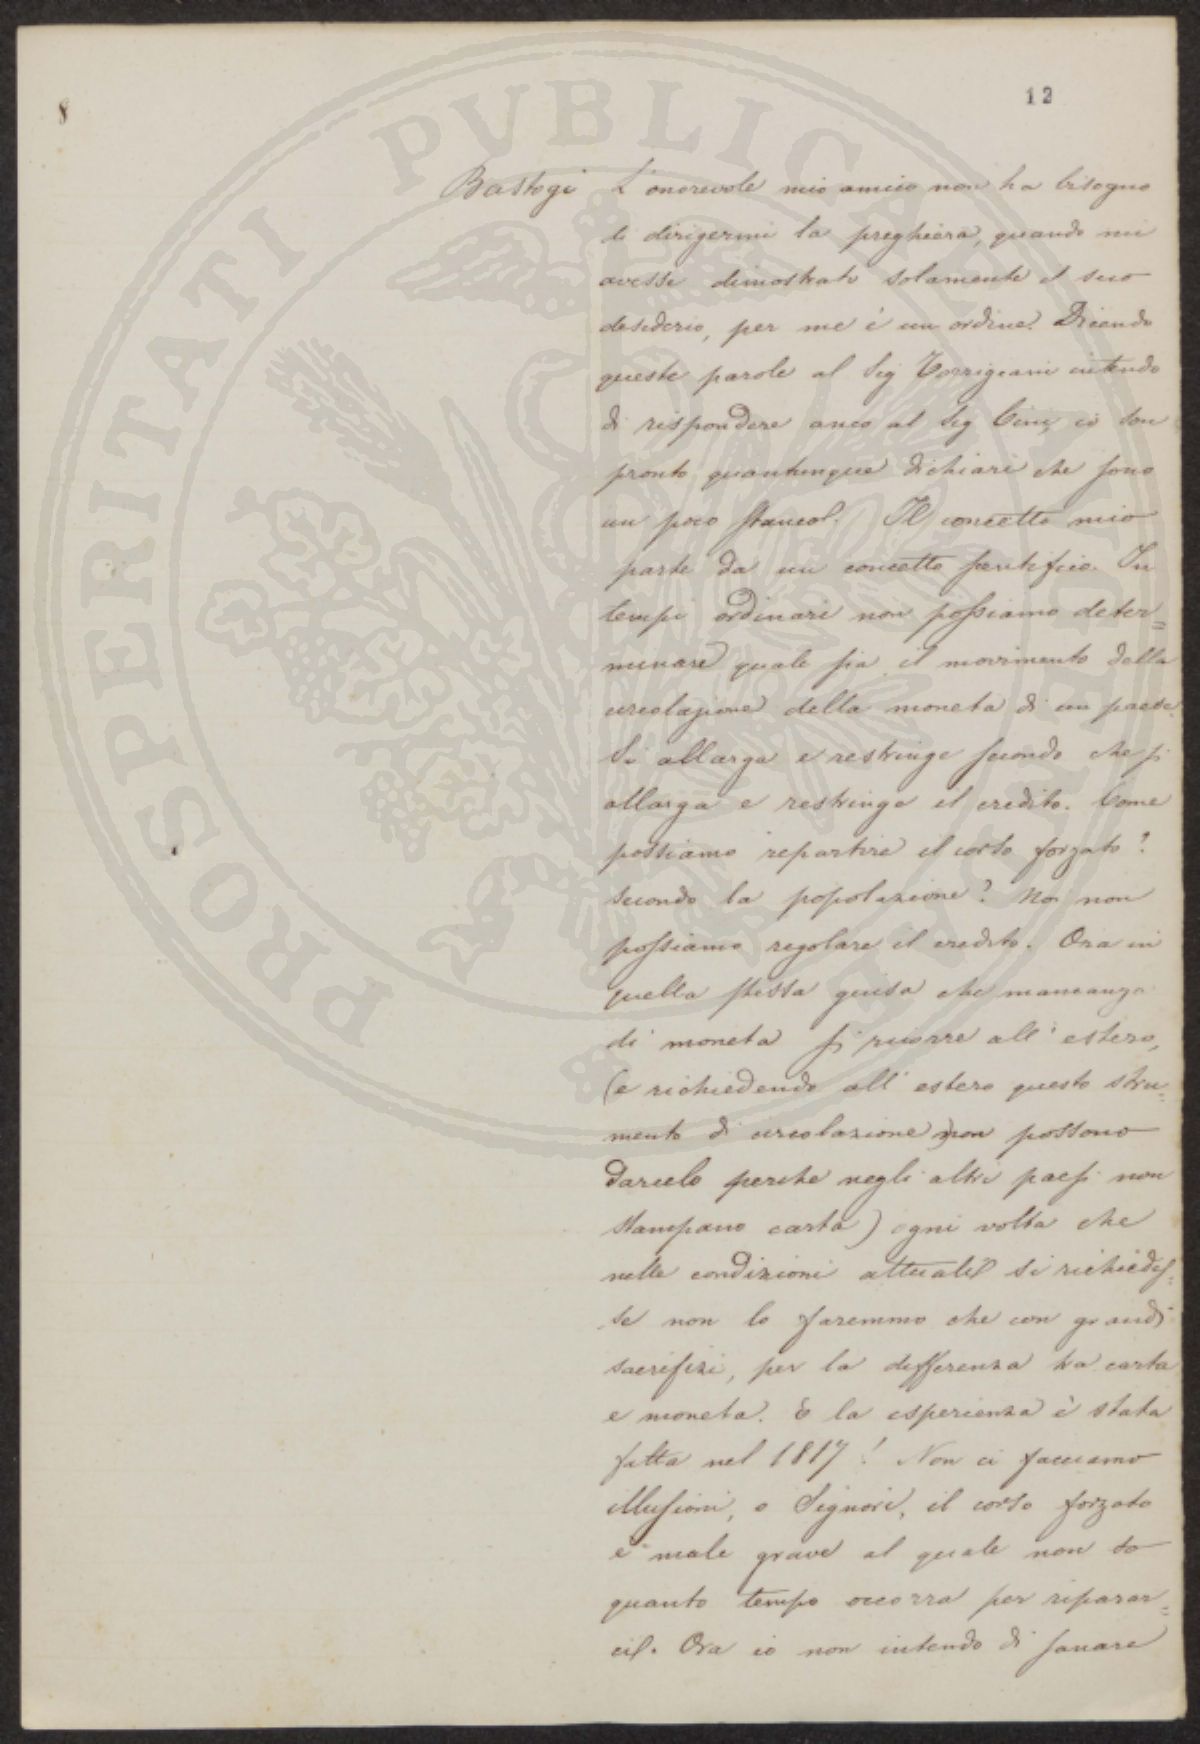 8
12
Bastogi L'onorevole mio amico non ha bisogno
di dirigermi la preghiera, quando mi
avesse dimostrato solamente il suo
desiderio, per me è un ordine. Dicendo
queste parole al Sig Torrigiani intendo
di rispondere anco al Sig Cini, io son
pronto quantunque dichiari che sono
un poco stanco. Il concetto mio
parte da un concetto scentifico. In
tempi ordinari non possiamo deter=
minare quale sia il movimento della
circolazione della moneta di un paese.
Si allarga e restringe secondo che si
allarga e restringe il credito. Come
possiamo repartire il corso forzato?
secondo la popolazione? Noi non
possiamo regolare il credito. Ora in
quella stessa guisa che mancanza
di moneta si ricorre all'estero,
(e richiedendo all'estero questo stru=
mento di circolazione) non possono
darcelo perche negli altri paesi non
stampano carta) ogni volta che
nelle condizioni attuali si richiedes=
se non lo faremmo che con grandi
sacrifizi, per la differenza tra carta
e moneta. E la esperienza è stata
fatta nel 1817! Non ci facciamo
illusioni, o Signori, il corso forzato
è male grave al quale non so
quanto tempo occorra per riparar=
ci. Ora io non intendo di sanare
PROSPERITATI PVBLICAE